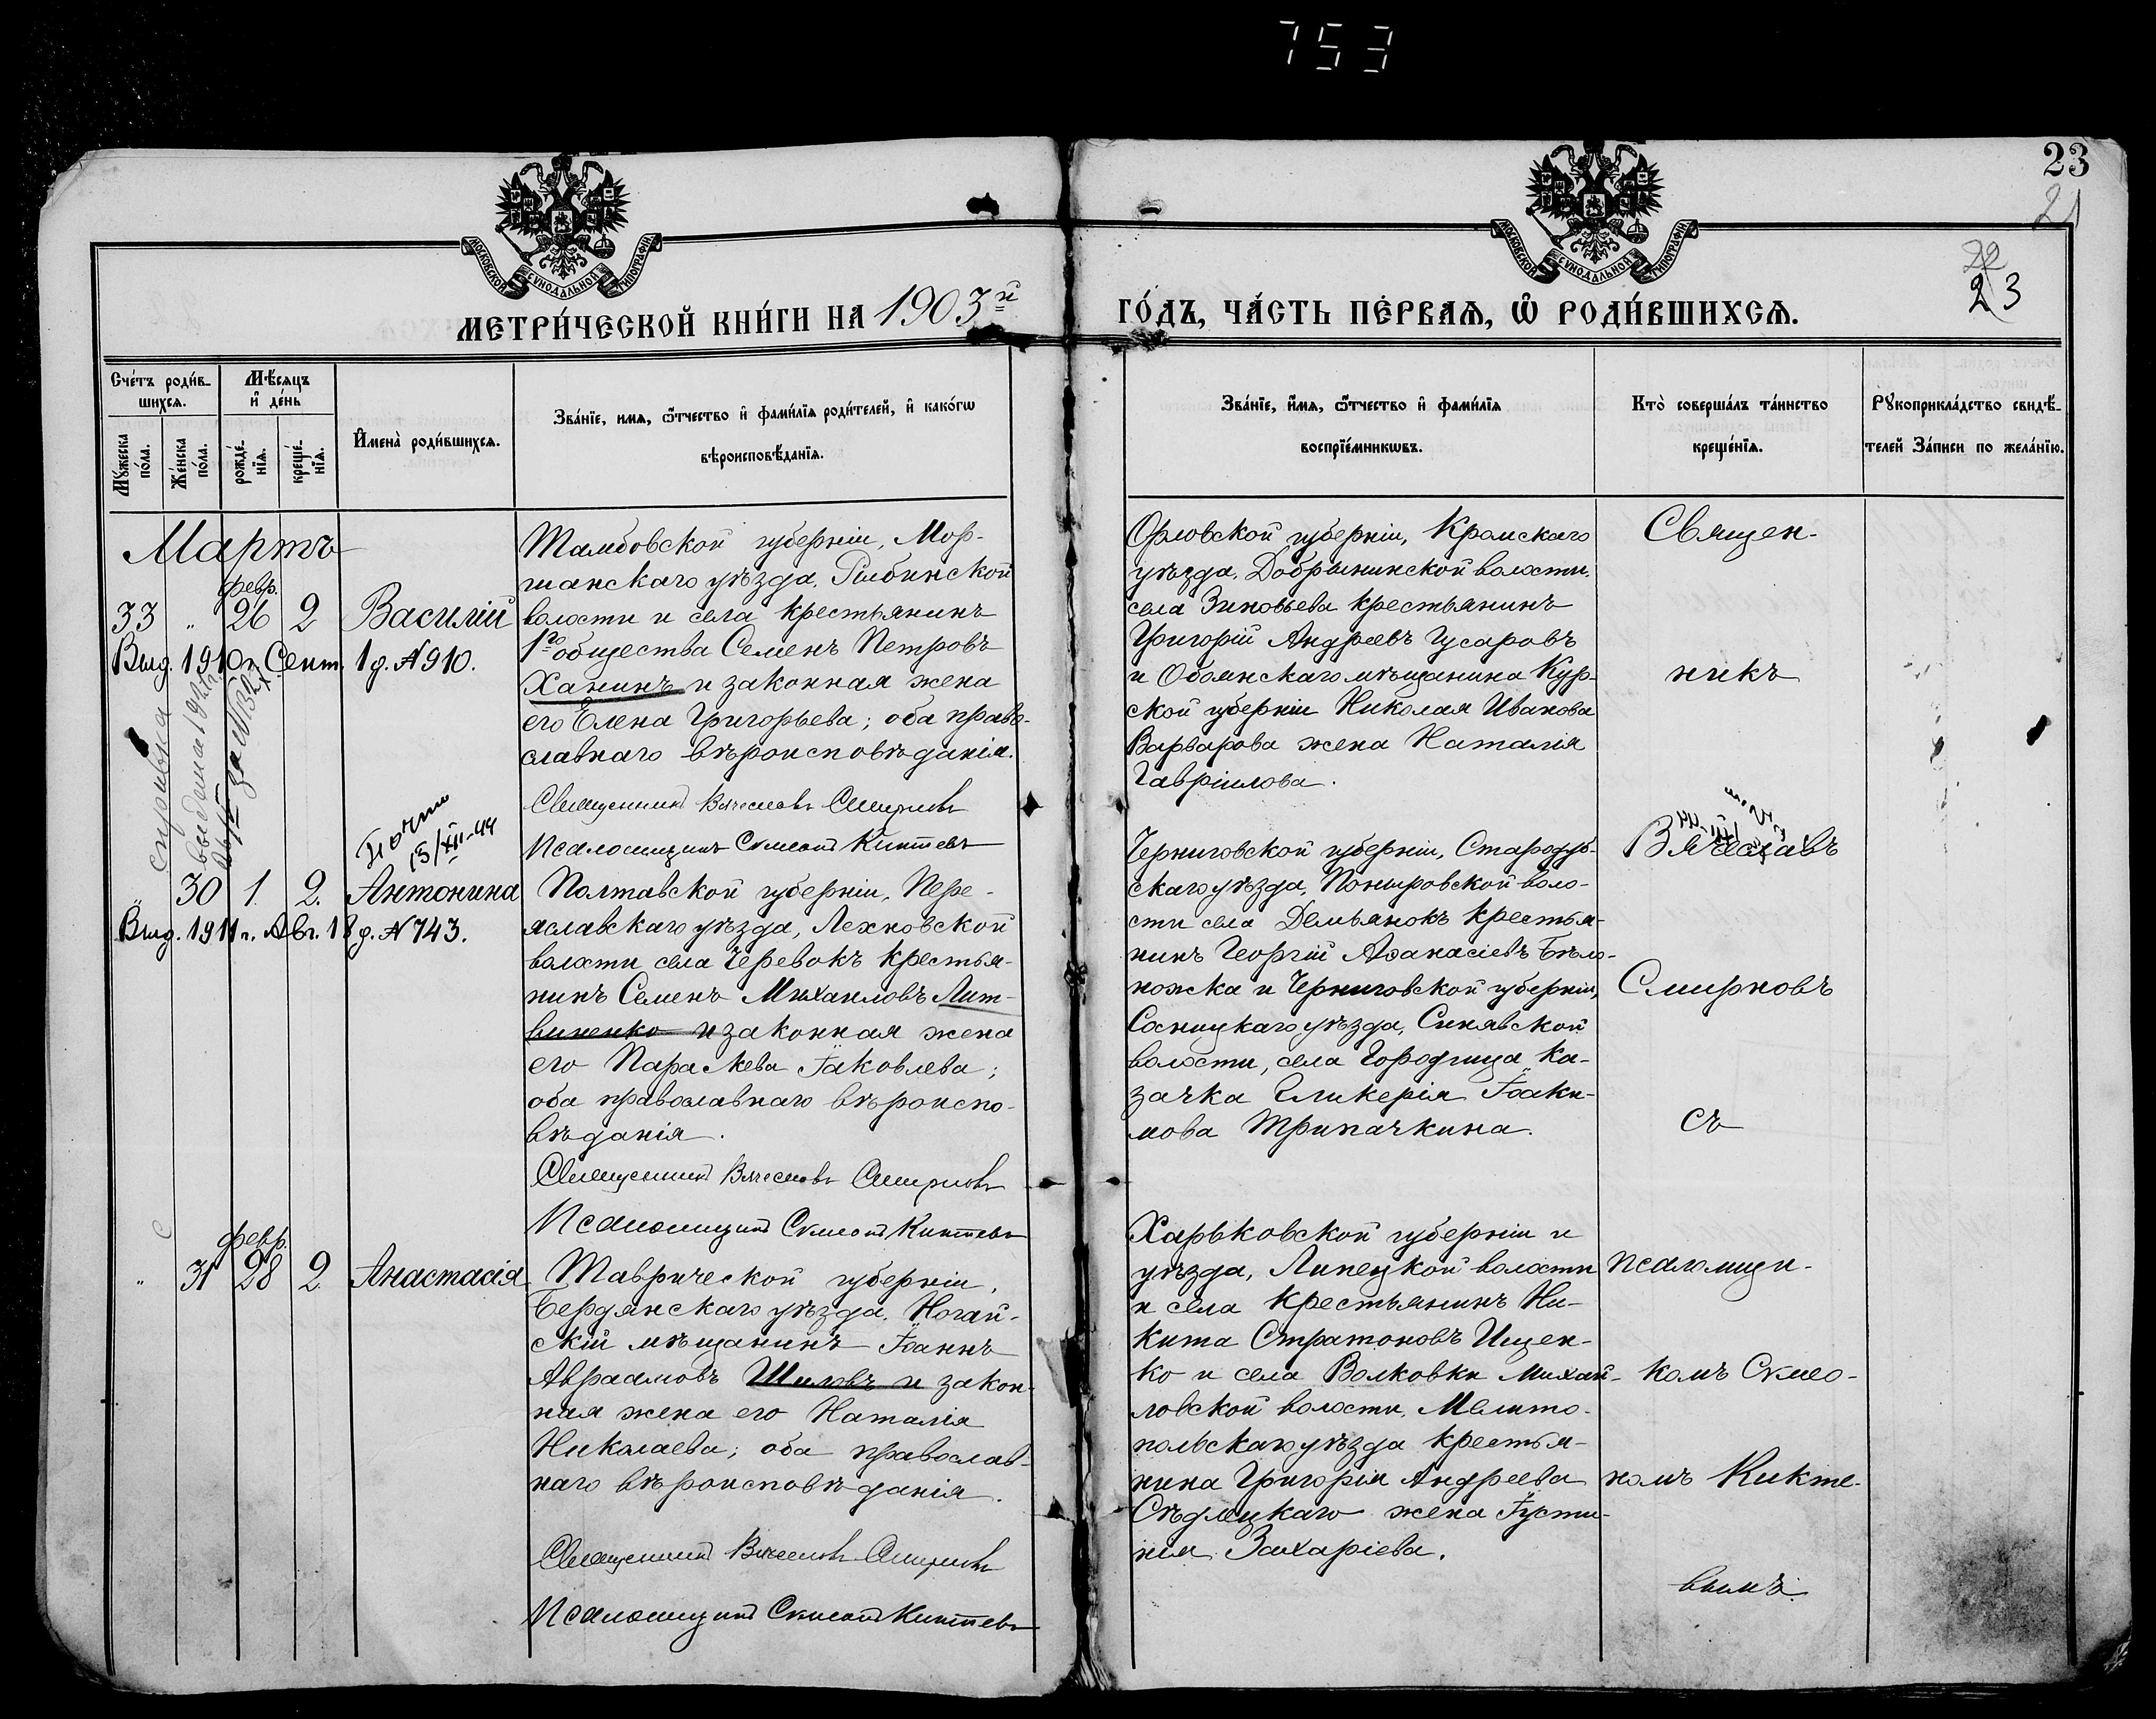 753
23
21
22
23
МОСКОВСКОЙ СУНОДАЛЬНОЙ ТИПОГРАФІИ
МОСКОВСКОЙ СУНОДАЛЬНОЙ ТИПОГРАФІИ
МЕТРИ́ЧЕСКОЙ КНИ́ГИ НА 1903й ГО́ДЪ, ЧА́СТЬ ПЕ́РВАѦ, Ѡ҆ РОДИ́ВШИХСѦ.
Счéтъ роди́в-
шихсѧ.
Мѣ́сѧцъ
и҆ дéнь
Мꙋ́жеска
пóла.
Жéнска
пóла.
рождé-
нїѧ.
крещé-
нїѧ.
И҆менà роди́вшихсѧ.
Звáнїе, имѧ, ѻ҆́тчество и҆ фами́лїѧ роди́телей, и҆ какóгѡ
вѣроисповѣ́данїѧ.
Звáнїе, и҆́мѧ, ѻ҆́тчество и҆ фами́лїѧ
воспрїéмникѡвъ.
Ктò совершáлъ тáинство
крещéнїѧ.
Рꙋкоприклáдство свидѣ́-
телей зáписи по желáнїю.
Мартъ
февр.
33 " 26 2 Василій
Выд. 1910 г. Сент. 1 д. № 910.
Тамбовской губерніи, Мор-
шанскаго уѣзда, Рыбинской
волости и села крестьянинъ
1го общества Семенъ Петровъ
Ханинъ и законная жена
его Елена Григорьева; оба право-
славнаго вѣроисповѣданія.
Священникъ Вячеславъ Смирновъ
Псаломщикъ Симеонъ Киктевъ
Орловской губерніи, Кромскаго
уѣзда, Добрынинской волости,
села Зиновьева крестьянинъ
Григорій Андреевъ Гусаровъ
и Обоянскаго мѣщанина Кур-
ской губерніи Николая Иванова
Варварова жена Наталія
Гавріилова.
справка
выдана
за №
Почто
15/XII-44
" 30 1. 2. Антонина
Выд. 1911 г. Авг. 18 д. № 743.
Полтавской губерніи, Пере-
яславскаго уѣзда, Лехновской
волости села Черевокъ крестья-
нинъ Семенъ Михаиловъ Лит-
виненко и законная жена
его Параскева Іаковлева;
оба православнаго вѣроиспо-
вѣданія.
Священникъ Вячеславъ Смирновъ
Псаломщикъ Симеонъ Киктевъ
Черниговской губерніи, Стародуб-
скаго уѣзда, Понуровской воло-
сти села Демьянокъ крестья-
нинъ Георгій Аѳанасіевъ Бѣло-
ножка и Черниговской губерніи,
Сосницкаго уѣзда, Синявской
волости, села Городища ка-
зачка Гликерія Іоаки-
мова Трипачкина.
февр.
" 31 28 2 Анастасія
Таврической губерніи,
Бердянскаго уѣзда, Ногай-
скій мѣщанинъ Іоаннъ
Авраамовъ Шиловъ и закон-
ная жена его Наталія
Николаева; оба православ-
наго вѣроисповѣданія.
Священникъ Вячеславъ Смирновъ
Псаломщикъ Симеонъ Киктевъ
Харьковской губерніи и
уѣзда, Липецкой волости
и села крестьянинъ Ни-
кита Стратоновъ Ищен-
ко и села Волковки Михай-
ловской волости, Мелито-
польскаго уѣзда крестья-
нина Григорія Андреева
Сѣдлецкаго жена Іусти-
нія Захаріева.
Священ-
никъ
Вячеславъ
Смирновъ
съ
псаломщи-
комъ Симео-
номъ Кикте-
вымъ.